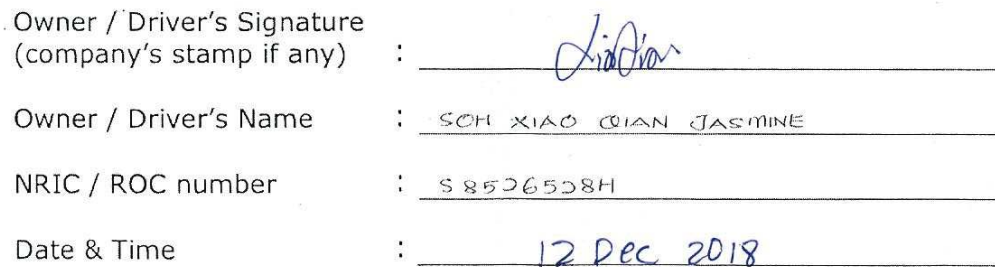 Owner / Driver's Signature
(company's stamp if any) :
Owner / Driver's Name : SOH XIAO QIAN JASMINE
NRIC / ROC number : S8526528H
Date & Time : 12 Dec 2018